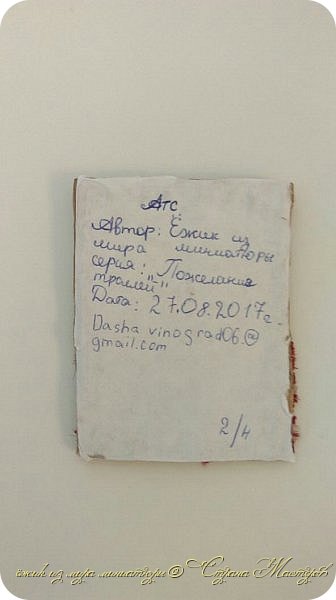 АТС
Автор: Ёжик из
мира миниатюры
серия: "Пожелания
троллей"
Дата: 27.08.2017г.
Dasha vinograd06.@
gmail.com
2/4
ёжик из мира миниатюры @ Страна Мастеров